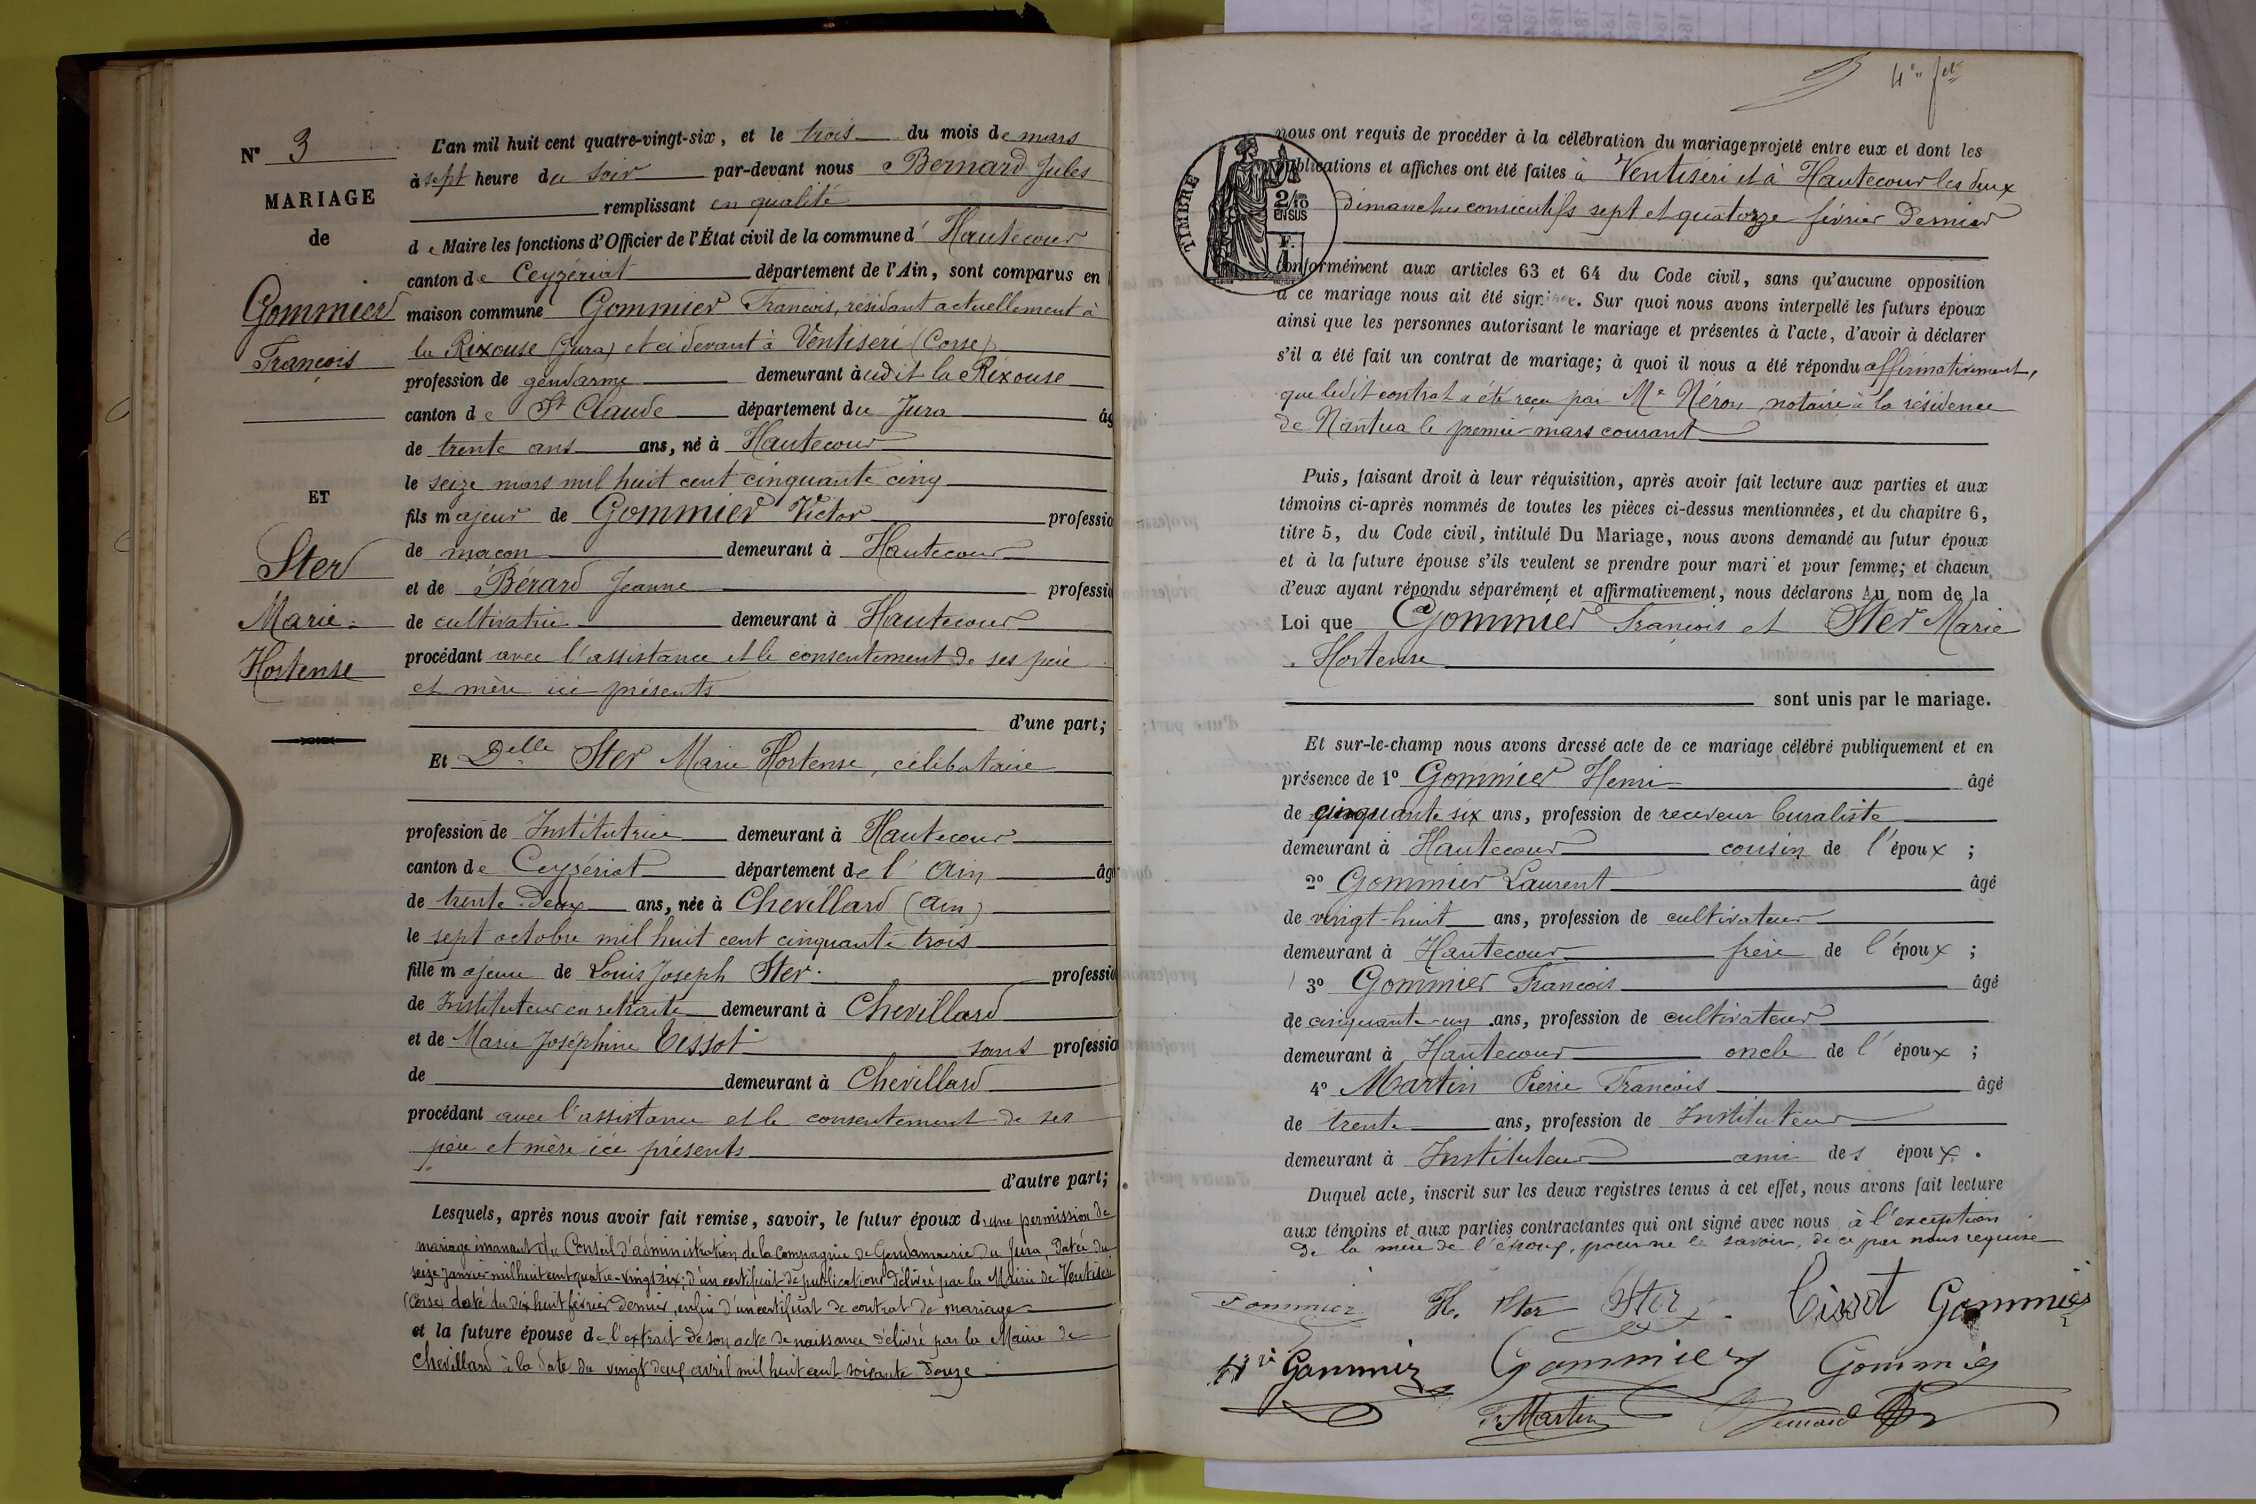 N° 3
MARIAGE
de
Gommier
François
ET
Ster
Marie
Hortense
L'an mil huit cent quatre-vingt-six, et le trois du mois de mars
à sept heure du soir par-devant nous Bernard Jules
remplissant en qualité
de Maire les fonctions d'Officier de l'État civil de la commune d' Hautecour
canton de Ceyzériat département de l'Ain, sont comparus en
maison commune Gommier François, résidant actuellement à
la Rixouse (Jura) et ci devant à Ventiseri (Corse)
profession de gendarme demeurant audit la Rixouse
canton de St Claude département du Jura âg
de trente ans ans, né à Hautecour
le seize mars mil huit cent cinquante cinq
fils majeur de Gommier Victor professio
de maçon demeurant à Hautecour
et de Bérard Jeanne professio
de cultivatrice demeurant à Hautecour
procédant avec l'assistance et le consentement de ses père
et mère ici présents
d'une part;
Et Delle Ster Marie Hortense, célibataire
profession de Institutrice demeurant à Hautecour
canton de Ceyzériat département de l'Ain âg
de trente-deux ans, née à Chevillard (Ain)
le sept octobre mil huit cent cinquante trois
fille majeure de Louis Joseph Ster professio
de Instituteur en retraite demeurant à Chevillard
et de Marie Joséphine Tissot sans professio
de demeurant à Chevillard
procédant avec l'assistance et le consentement de ses
père et mère ici présents
d'autre part;
Lesquels, après nous avoir fait remise, savoir, le futur époux d'une permission de
mariage émanant du Conseil d'administration de la Compagnie de Gendarmerie du Jura, datée du
seize janvier mil huit cent quatre-vingt six; d'un certificat de publications délivré par la Mairie de Ventiseri
(Corse) daté du dix huit février dernier, enfin d'un certificat de contrat de mariage
et la future épouse de l'extrait de son acte de naissance délivré par la Mairie de
Chevillard à la date du vingt deux avril mil huit cent soixante douze
TIMBRE
2/10
EN SUS
F.
nous ont requis de procéder à la célébration du mariage projeté entre eux et dont les
publications et affiches ont été faites à Ventiseri et à Hautecour les deux
dimanches consécutifs sept et quatorze février dernier
conformément aux articles 63 et 64 du Code civil, sans qu'aucune opposition
à ce mariage nous ait été signifiée. Sur quoi nous avons interpellé les futurs époux
ainsi que les personnes autorisant le mariage et présentes à l'acte, d'avoir à déclarer
s'il a été fait un contrat de mariage; à quoi il nous a été répondu affirmativement,
que ledit contrat a été reçu par Me Néron notaire à la résidence
de Nantua le premier mars courant
Puis, faisant droit à leur réquisition, après avoir fait lecture aux parties et aux
témoins ci-après nommés de toutes les pièces ci-dessus mentionnées, et du chapitre 6,
titre 5, du Code civil, intitulé Du Mariage, nous avons demandé au futur époux
et à la future épouse s'ils veulent se prendre pour mari et pour femme; et chacun
d'eux ayant répondu séparément et affirmativement, nous déclarons Au nom de la
Loi que Gommier François et Ster Marie
Hortense
sont unis par le mariage.
Et sur-le-champ nous avons dressé acte de ce mariage célébré publiquement et en
présence de 1° Gommier Henri âgé
de cinquante six ans, profession de receveur buraliste
demeurant à Hautecour cousin de l'époux ;
2° Gommier Laurent âgé
de vingt-huit ans, profession de cultivateur
demeurant à Hautecour frère de l'époux ;
3° Gommier François âgé
de cinquante-un ans, profession de cultivateur
demeurant à Hautecour oncle de l'époux ;
4° Martin Pierre François âgé
de trente ans, profession de Instituteur
demeurant à Instituteur ami des époux.
Duquel acte, inscrit sur les deux registres tenus à cet effet, nous avons fait lecture
aux témoins et aux parties contractantes qui ont signé avec nous à l'exception
de la mère de l'époux, pour ne le savoir, de ce par nous requise
Gommier H. Ster Ster Tissot Gommier
Hri Gommier Gommier Gommier
Martin Bernard